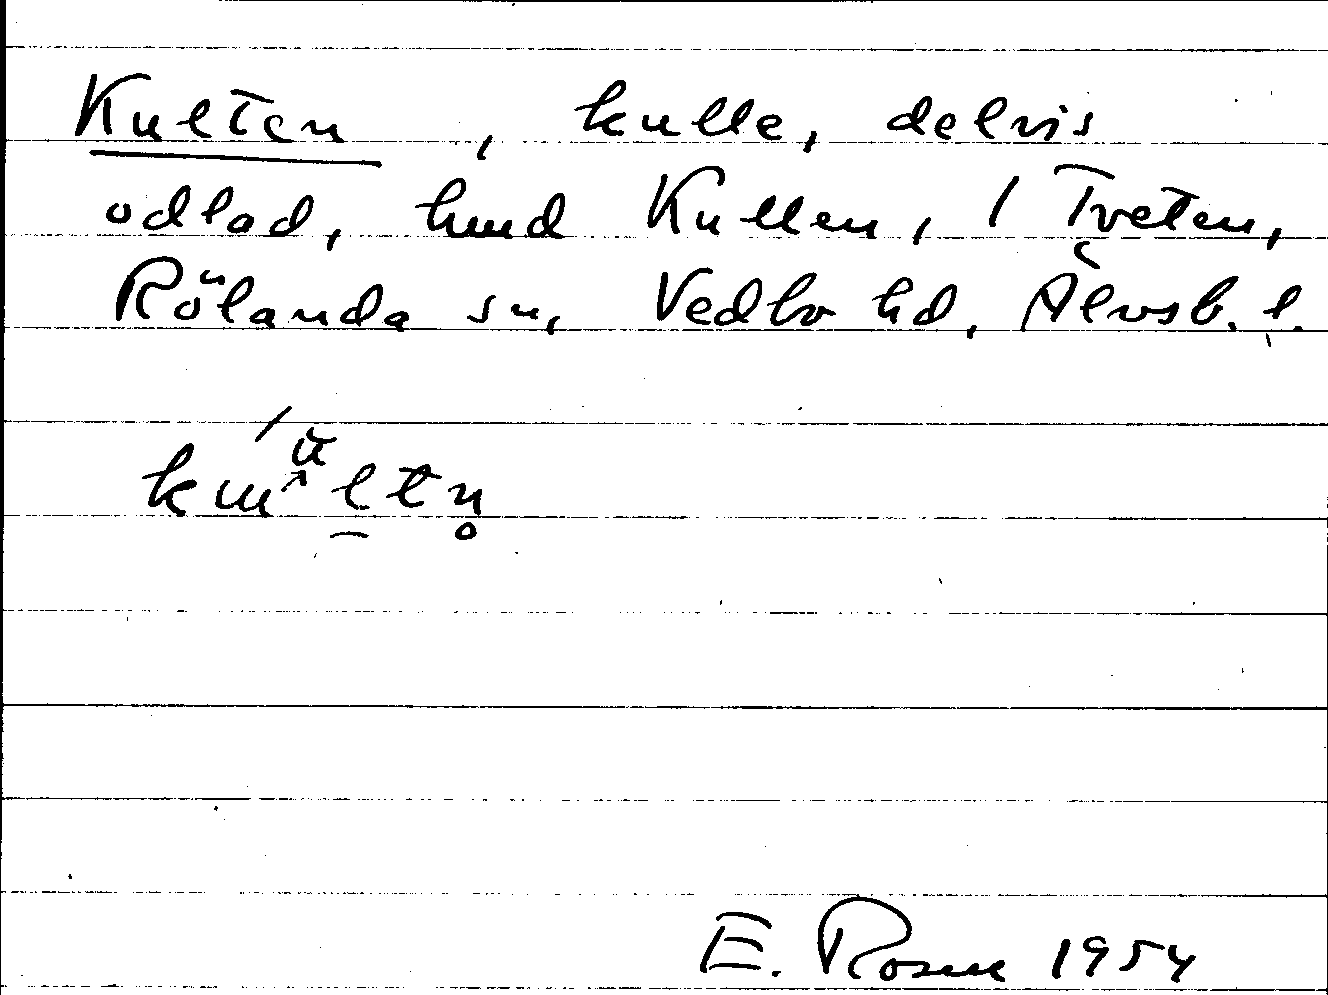 Kulten, kulle, delvis
odlad, hmd Kullen, 1 Tveten,
Rölanda sn, Vedbo hd, Älvsb. l.
E. Rosell 1954